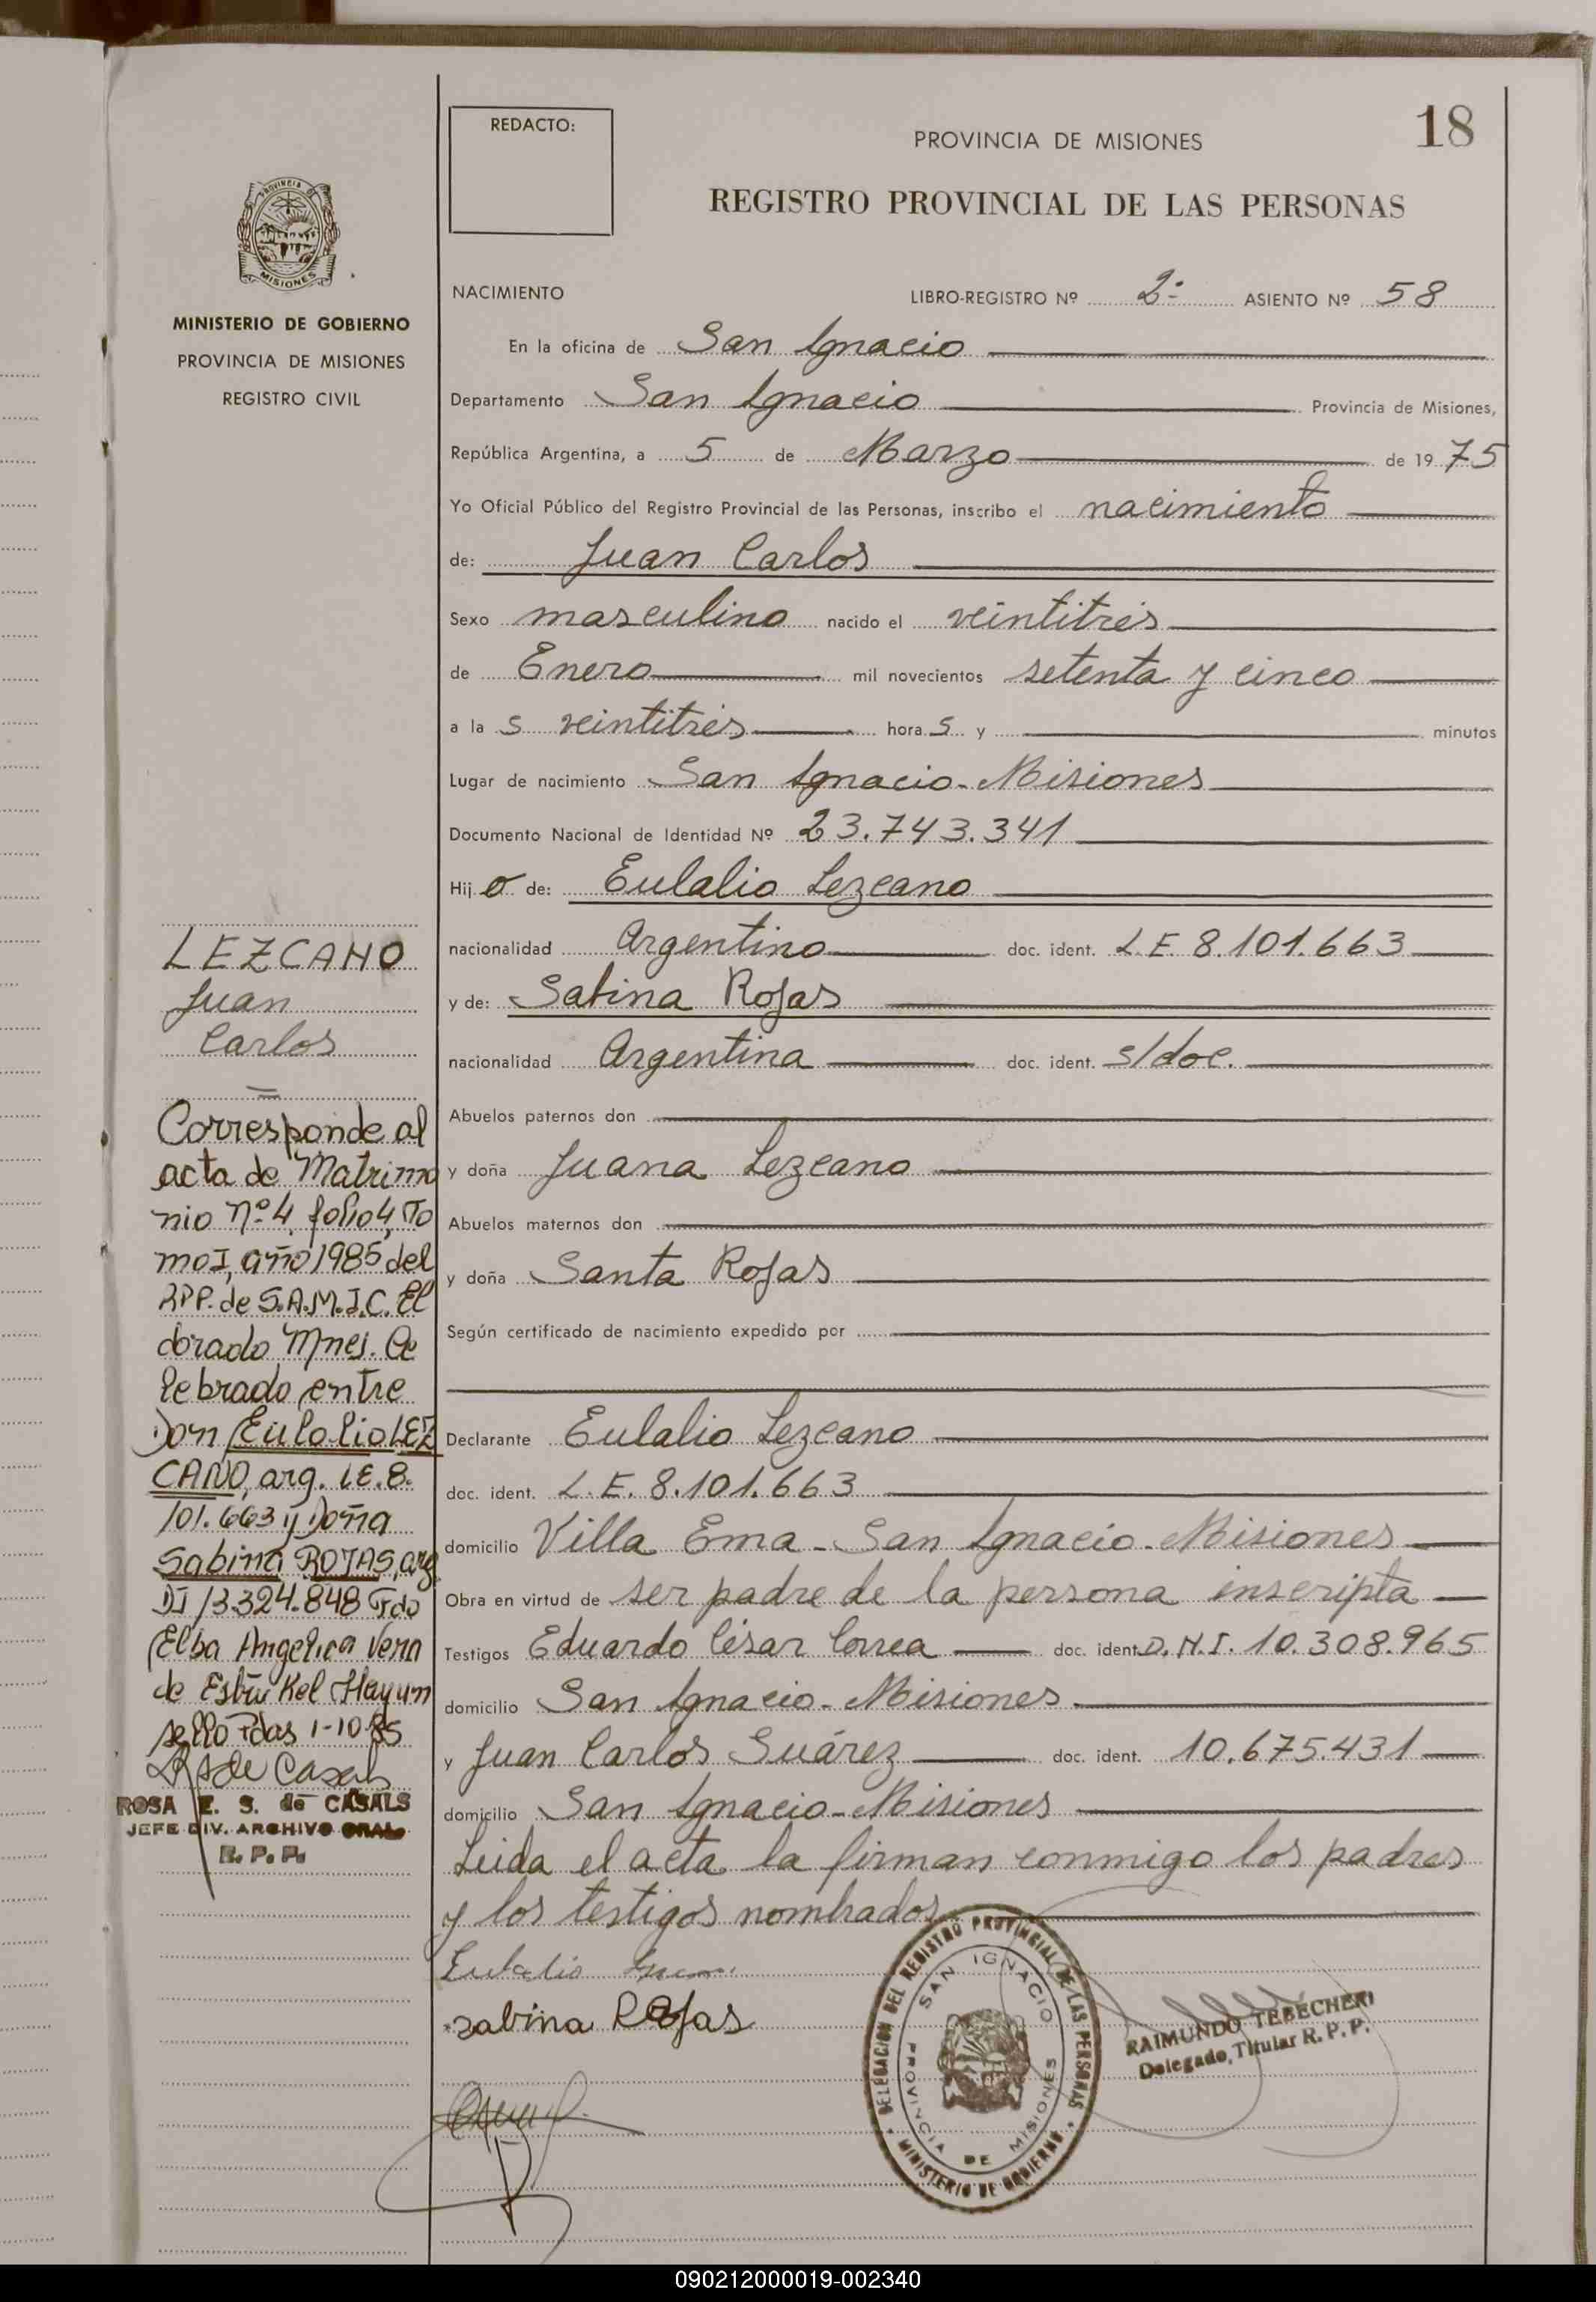 18
REDACTO:
PROVINCIA DE MISIONES
REGISTRO PROVINCIAL DE LAS PERSONAS
PROVINCIA DE
MISIONES
MINISTERIO DE GOBIERNO
PROVINCIA DE MISIONES
REGISTRO CIVIL
NACIMIENTO LIBRO-REGISTRO Nº 2º ASIENTO Nº 58
En la oficina de San Ignacio
Departamento San Ignacio Provincia de Misiones,
República Argentina, a 5 de Marzo de 1975
Yo Oficial Público del Registro Provincial de las Personas, inscribo el nacimiento
de: Juan Carlos
Sexo masculino nacido el veintitrés
de Enero mil novecientos setenta y cinco
a las veintitrés horas y minutos
Lugar de nacimiento San Ignacio - Misiones
Documento Nacional de Identidad Nº 23.743.341
Hijo de: Eulalio Lezcano
nacionalidad Argentino doc. ident. L.E. 8.101.663
y de: Sabina Rojas
nacionalidad Argentina doc. ident. s/doc.
Abuelos paternos don
y doña Juana Lezcano
Abuelos maternos don
y doña Santa Rojas
Según certificado de nacimiento expedido por
Declarante Eulalio Lezcano
doc. ident. L.E. 8.101.663
domicilio Villa Ema - San Ignacio - Misiones
Obra en virtud de ser padre de la persona inscripta
Testigos Eduardo César Correa doc. ident. D.N.I. 10.308.965
domicilio San Ignacio - Misiones
y Juan Carlos Suárez doc. ident. 10.675.431
domicilio San Ignacio - Misiones
Leida el acta la firman conmigo los padres
y los testigos nombrados
Eulalio
Sabina Rojas
DELEGACION DEL REGISTRO PROVINCIAL DE LAS PERSONAS
MINISTERIO DE GOBIERNO
SAN IGNACIO
PROVINCIA DE MISIONES
RAIMUNDO TEBECHERI
Delegado Titular R. P. P.
LEZCANO
Juan
Carlos
Corresponde al
acta de Matrimo
nio nº 4 folio 4, To
mo I, año 1985 del
RPP. de S.A.M.I.C. El
dorado Mnes. Ce
lebrado entre
Don Eulalio LEZ
CANO, arg. LE. 8.
101.663 y Doña
Sabina ROJAS, arg
DI 13.324.848 Fdo
Elba Angelica Vera
de Kel Hayum
sello Pdas 1-10-85
de Casals
ROSA E. S. de CASALS
JEFE DIV. ARCHIVO GRAL.
R. P. P.
090212000019-002340